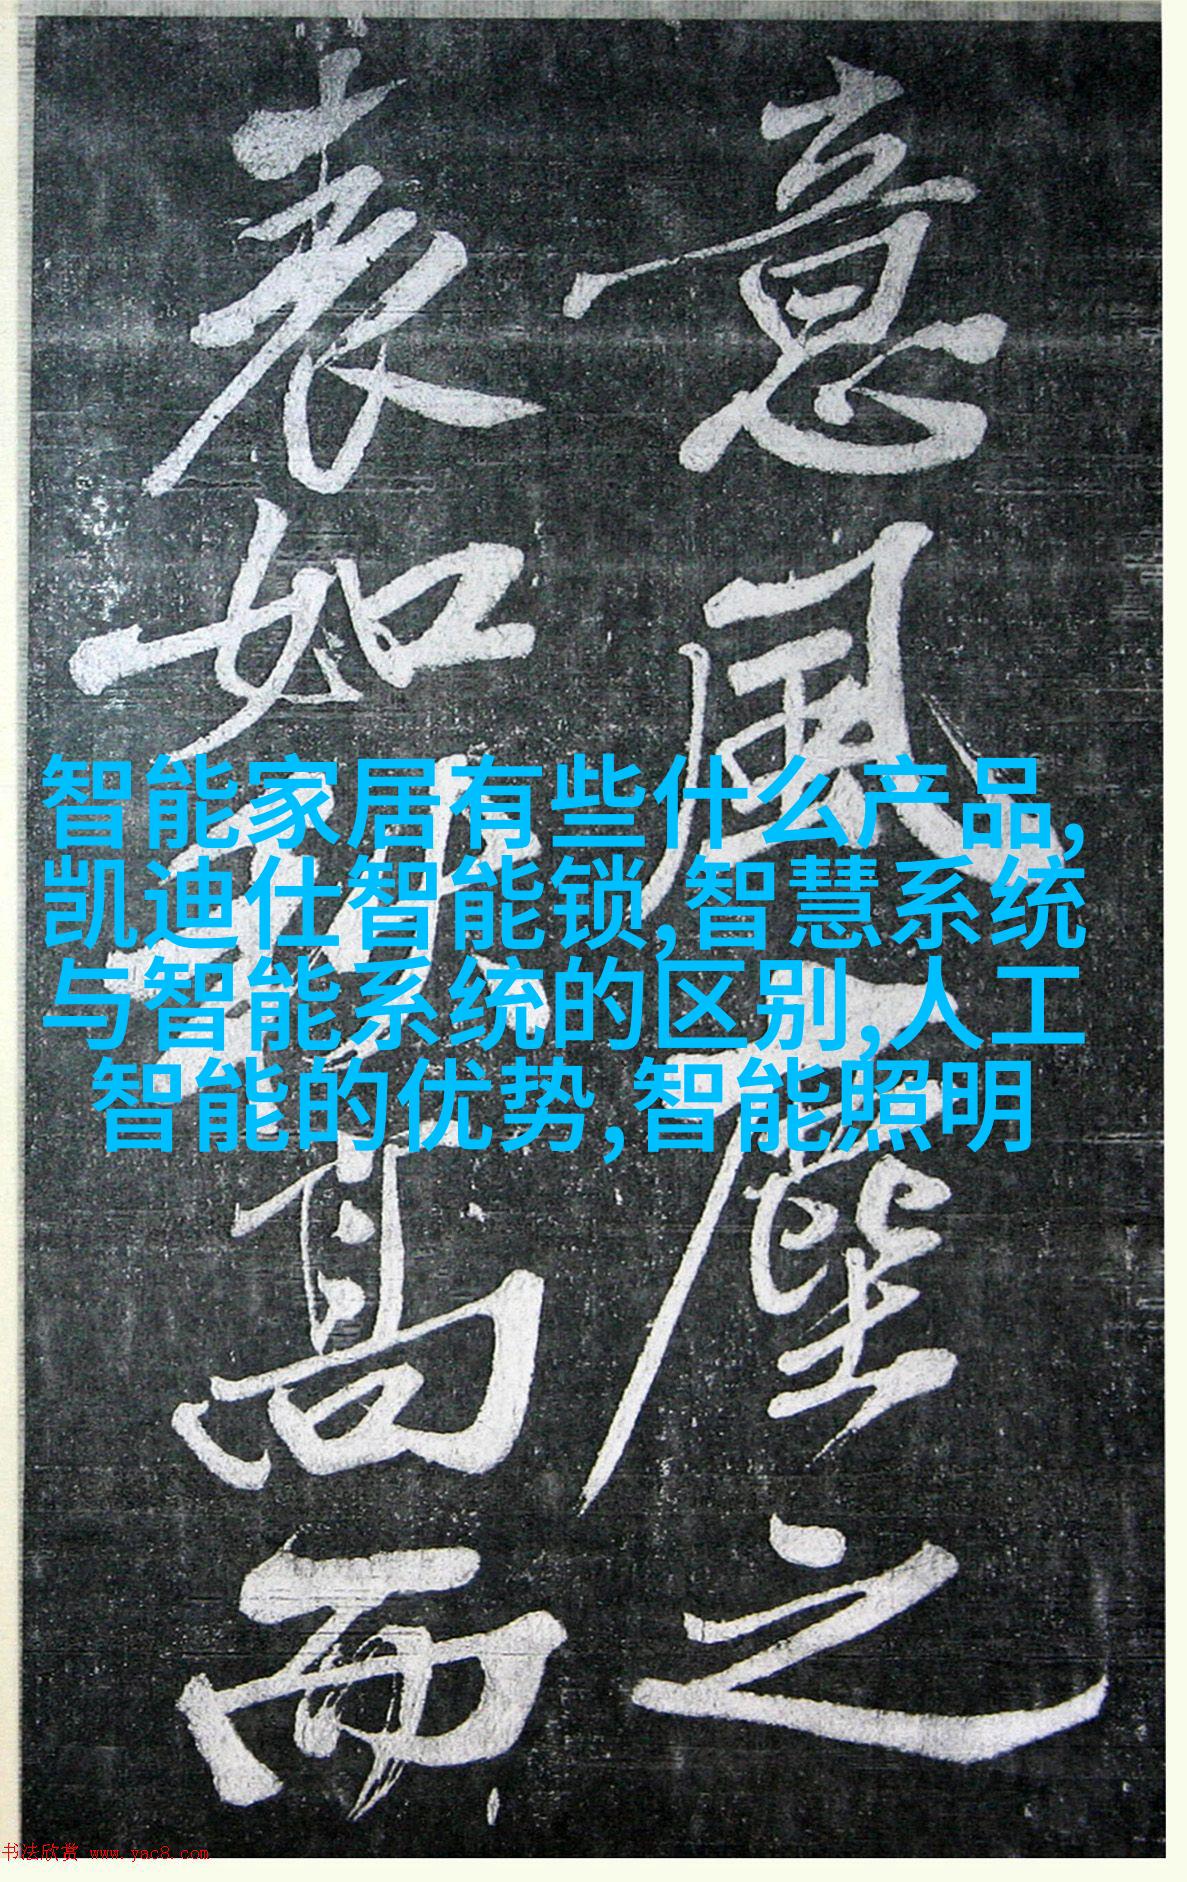 意風塵之
表如
高而
智能家居有些什么产品,
凯迪仕智能锁,智慧系统
与智能系统的区别,人工
智能的优势,智能照明
书法欣赏 www.yac8.com